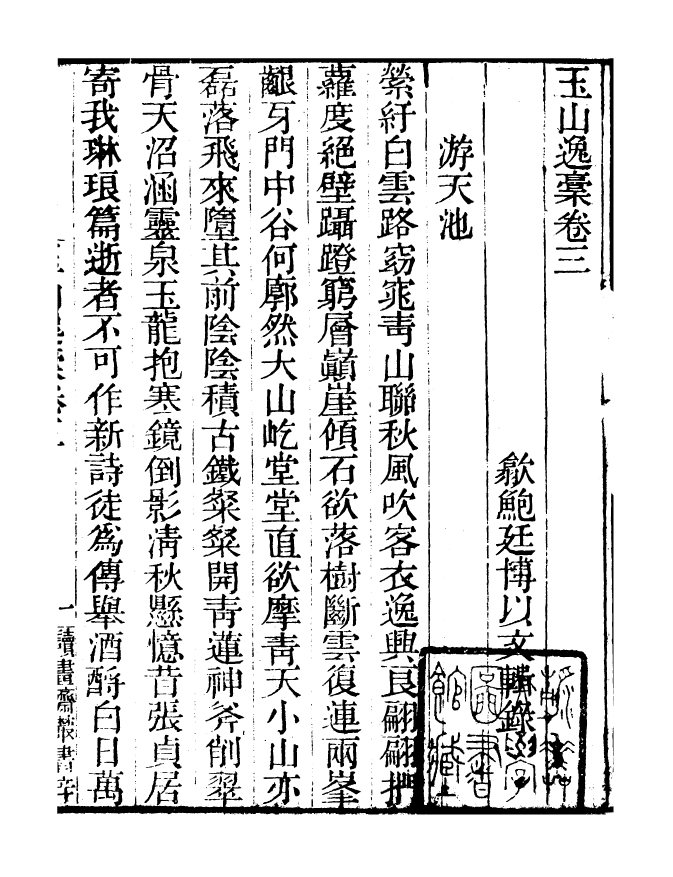 玉山逸稾卷三
歙鮑廷博以文輯錄
游天池
縈紆白雲路窈窕靑山聯秋風吹客衣逸興良翩翩捫
蘿度絕壁躡蹬窮層巔崖傾石欲落樹斷雲復連兩峯
齦牙門中谷何廓然大山屹堂堂直欲摩靑天小山亦
磊落飛來墮其前陰陰積古鐵粲粲開靑蓮神斧削翠
骨天沼涵靈泉玉龍抱寒鏡倒影凊秋懸憶昔張貞居
寄我琳琅篇逝者不可作新詩徒爲傳舉酒酹白日萬
一 讀畫齋叢書辛